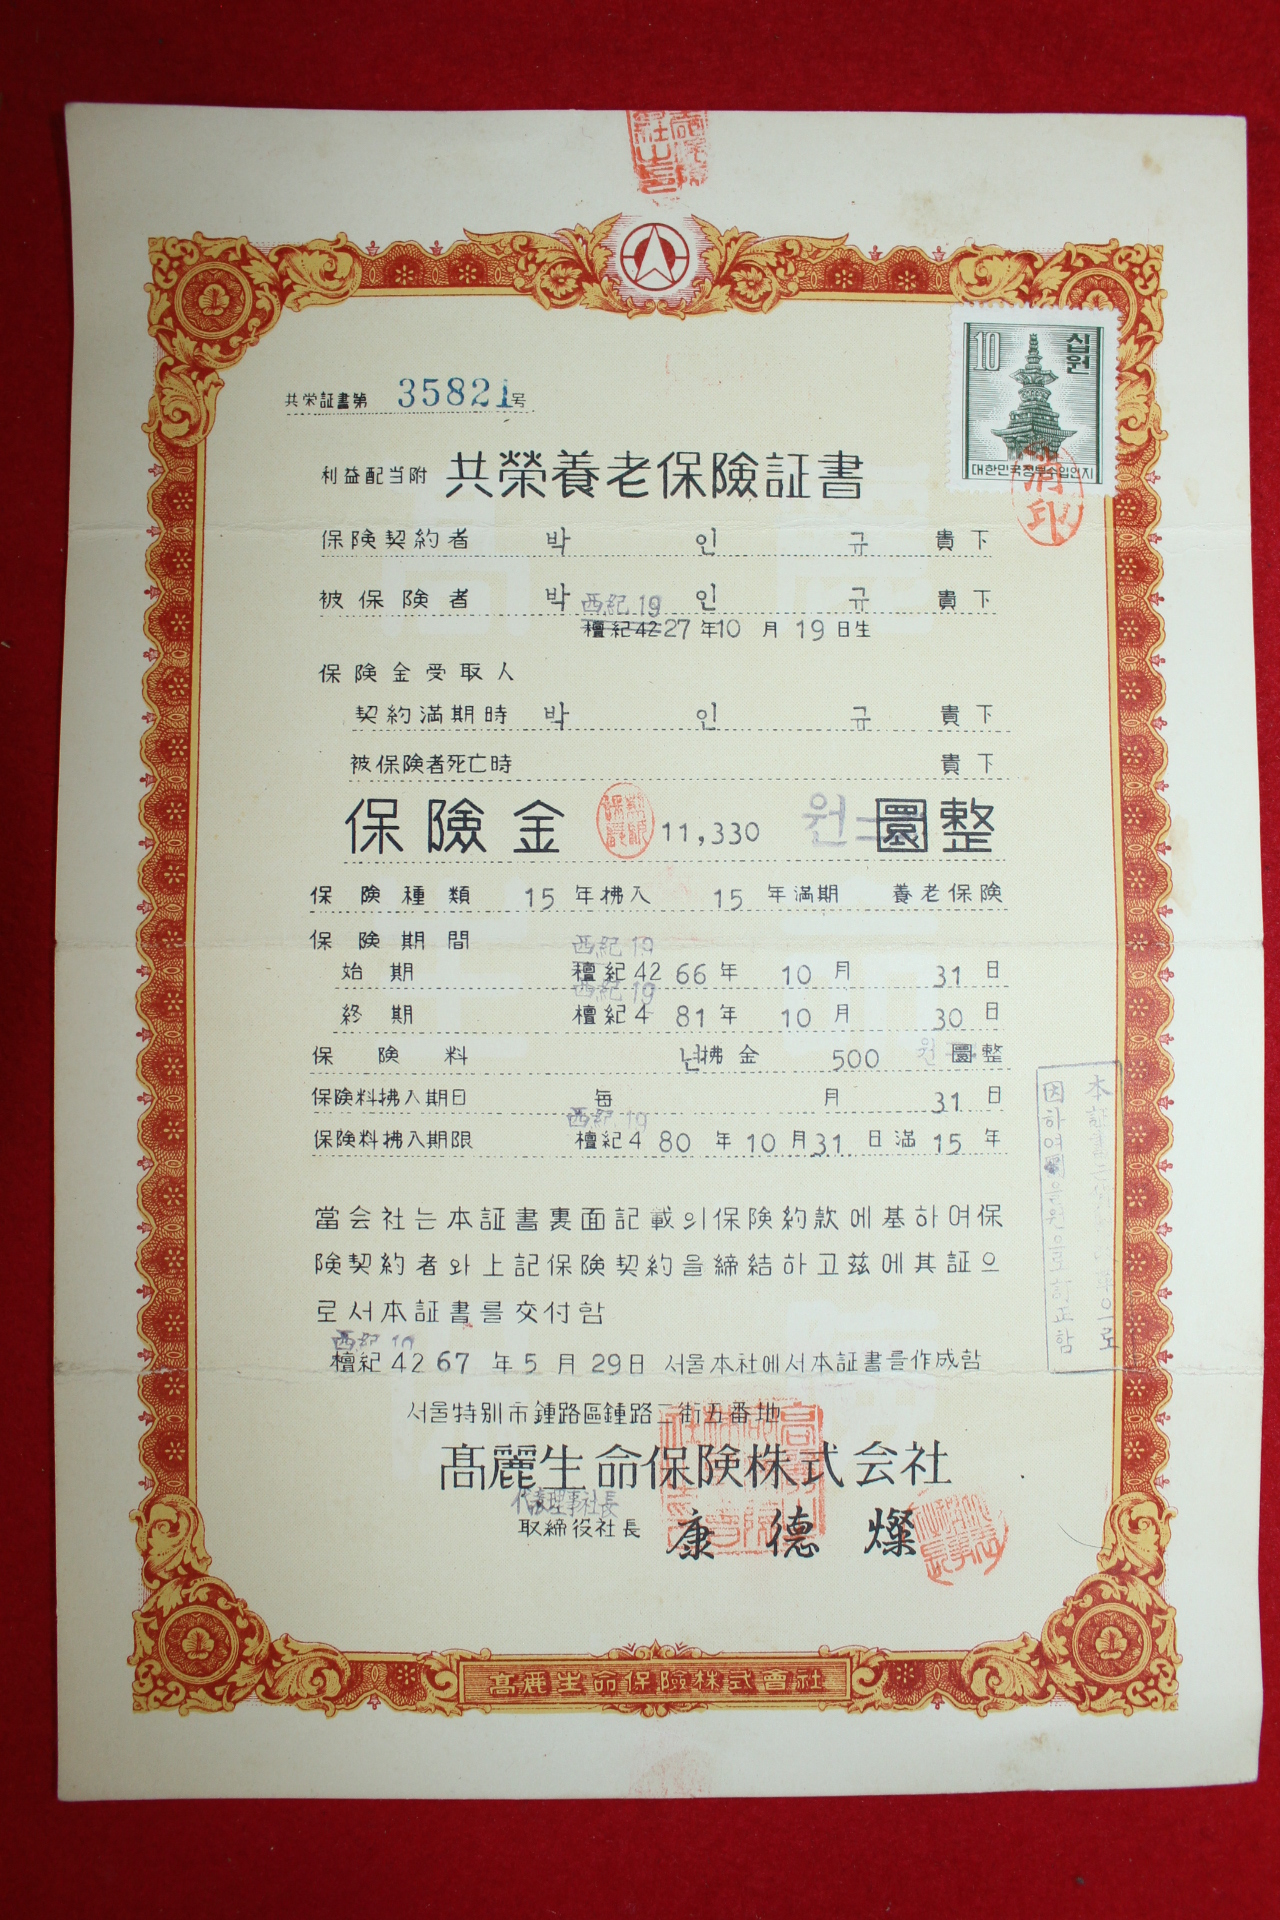 10
십원
대한민국정부수입인지
共栄証書第 35821号
利益配当附 共榮養老保險証書
消印
保険契約者 박 인 규 貴下
被保険者 박 인 규 貴下
西紀19
檀紀4227年10月19日生
保険金受取人
契約満期時 박 인 규 貴下
被保険者死亡時 貴下
保險金 11,330 원 圜整
保険種類 15年拂入 15年満期 養老保険
保険期間
西紀19
始期 檀紀4266年 10月 31日
西紀19
終期 檀紀4 81年 10月 30日
保険料 년拂金 500 원 圜整
保険料拂入期日 每 月 31日
西紀19
保険料拂入期限 檀紀4 80年10月31日満15年
本証書는
因하여圜을원으로訂正함
當会社는本証書裏面記載의保険約款에基하여保
険契約者와上記保険契約을締結하고玆에其証으
로서本証書를交付함
西紀19
檀紀4267年5月29日 서울本社에서本証書를作成함
서울特別市鍾路區鍾路二街五番地
高麗生命保険株式会社
代表理事社長
取締役社長 康德燦
高麗生命保險株式會社